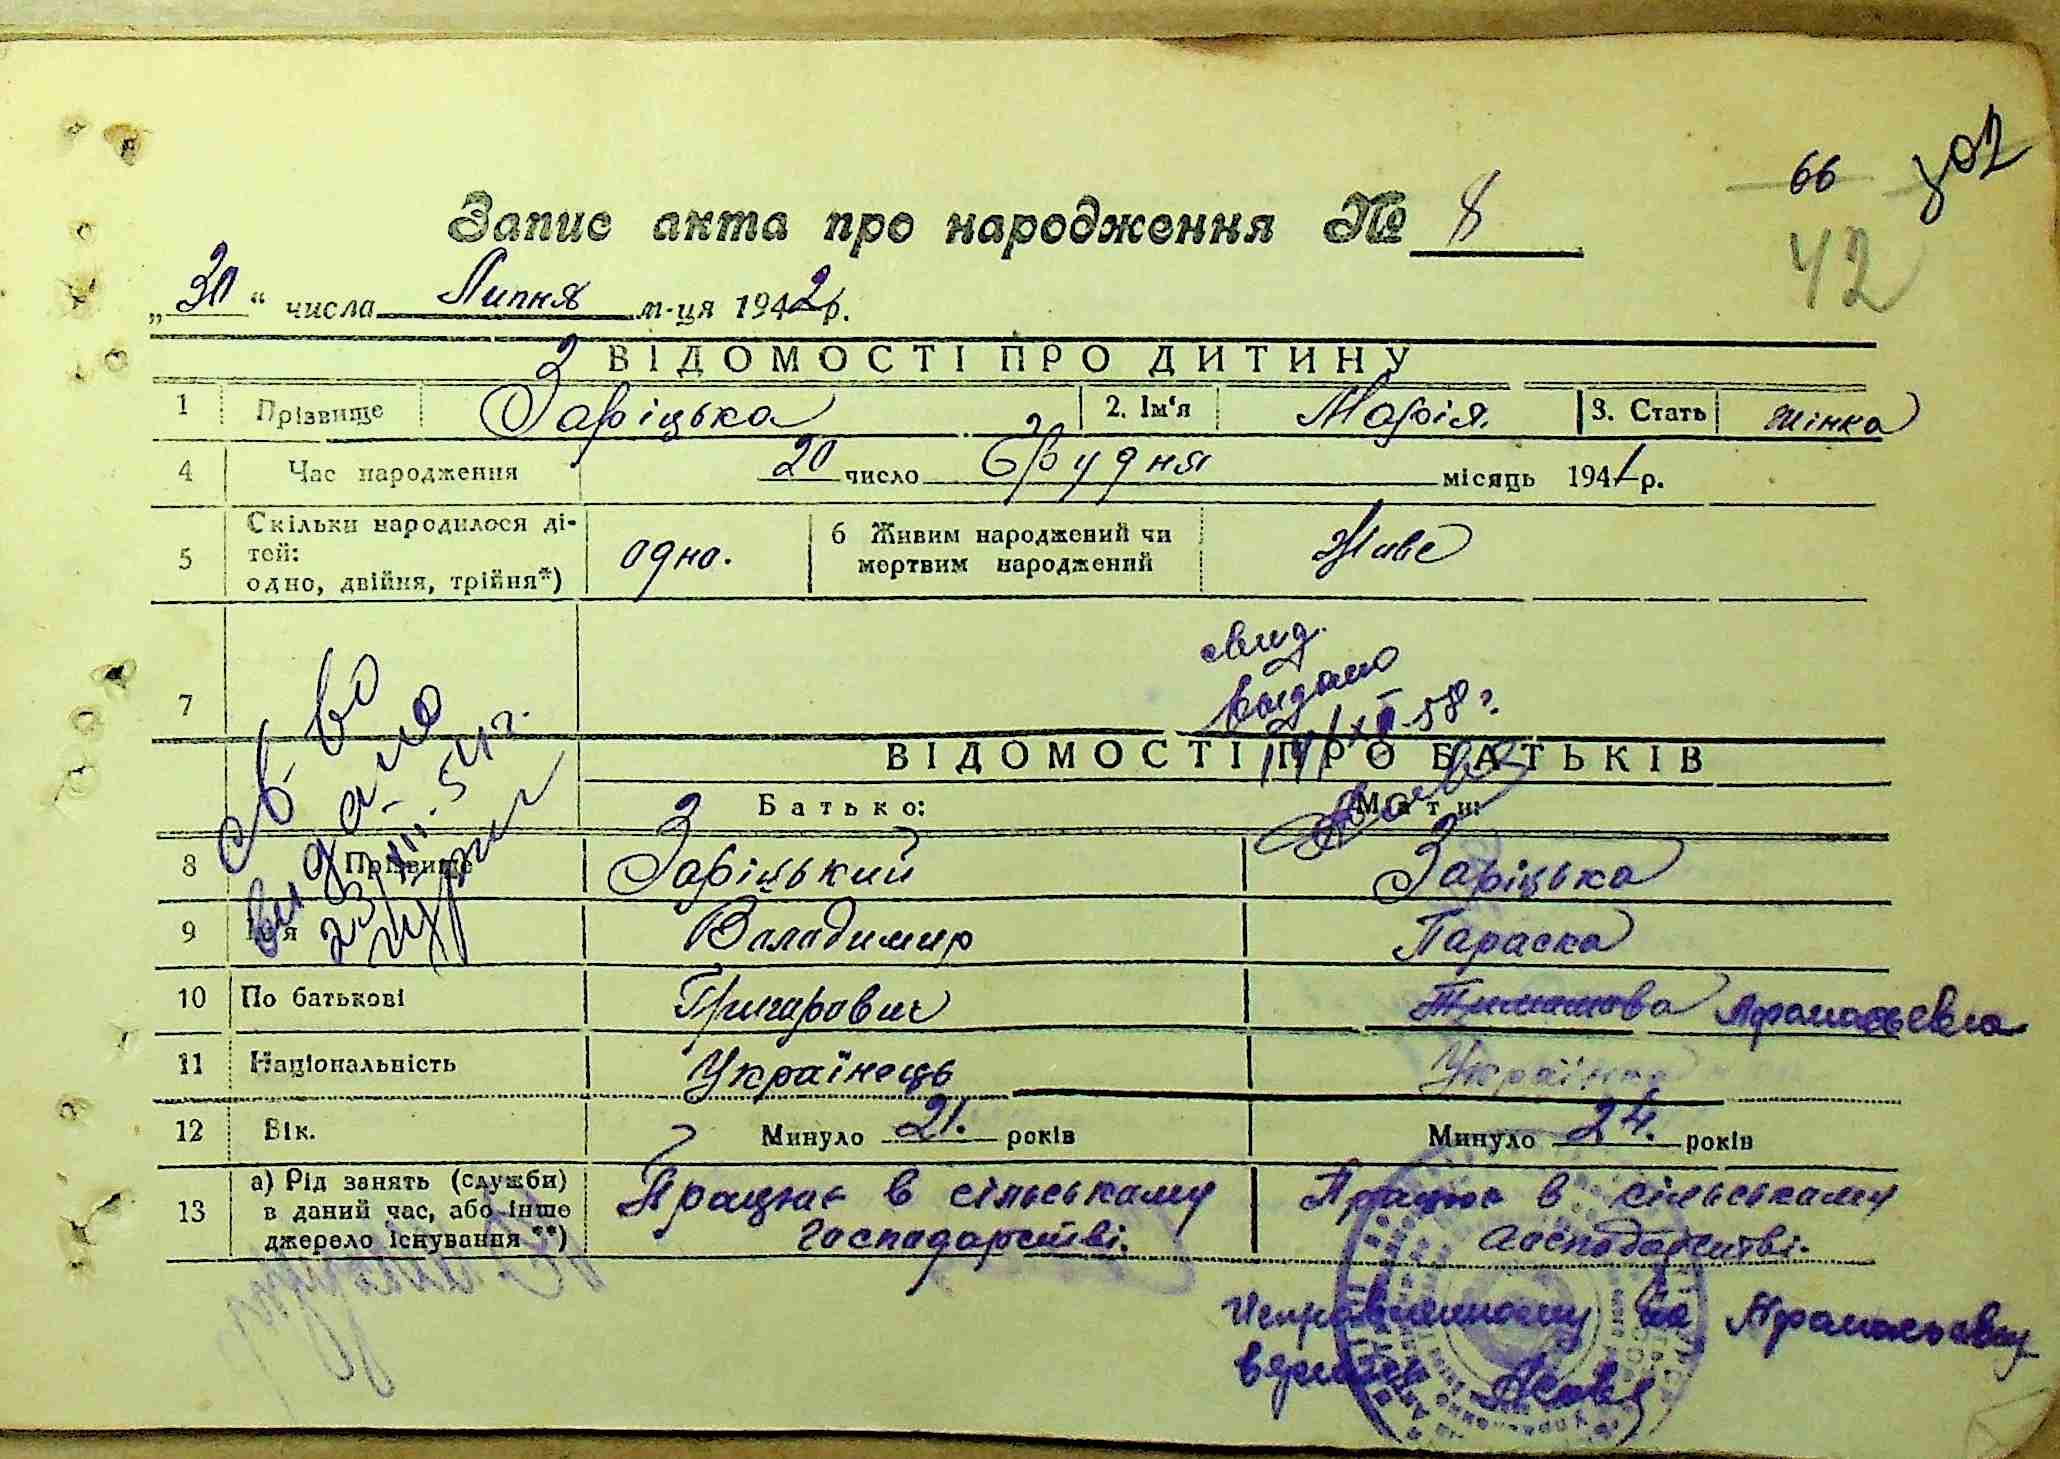 66 402
42
Запис акта про народження № 8
„30“ числа Липня м-ця 1942 р.
ВІДОМОСТІ ПРО ДИТИНУ
1 Прізвище Заріцька 2. Ім‘я Марія. 3. Стать жінка
4 Час народження 20 число Грудня місяць 1941 р.
5 Скільки народилося ді-
тей:
одно, двійня, трійня*) одно. 6 Живим народжений чи
мертвим народжений Живе
7
св-во
видано
23/III-54 г.
свид.
выдано
58 г.
ВІДОМОСТІ ПРО БАТЬКІВ
Батько: Мати:
8 Прізвище Заріцький Заріцька
9 Ім'я Валадимир Параска
10 По батькові Григарович Тимишова Афанасьевна
11 Національність Українець Українка
12 Вік. Минуло 21. років Минуло 24. років
13 а) Рід занять (служби)
в даний час, або інше
джерело існування **) Працює в сільськаму
госпадарстві. Працює в сільськаму
госпадарстві.
Исправленному на Афанасьевну
верить